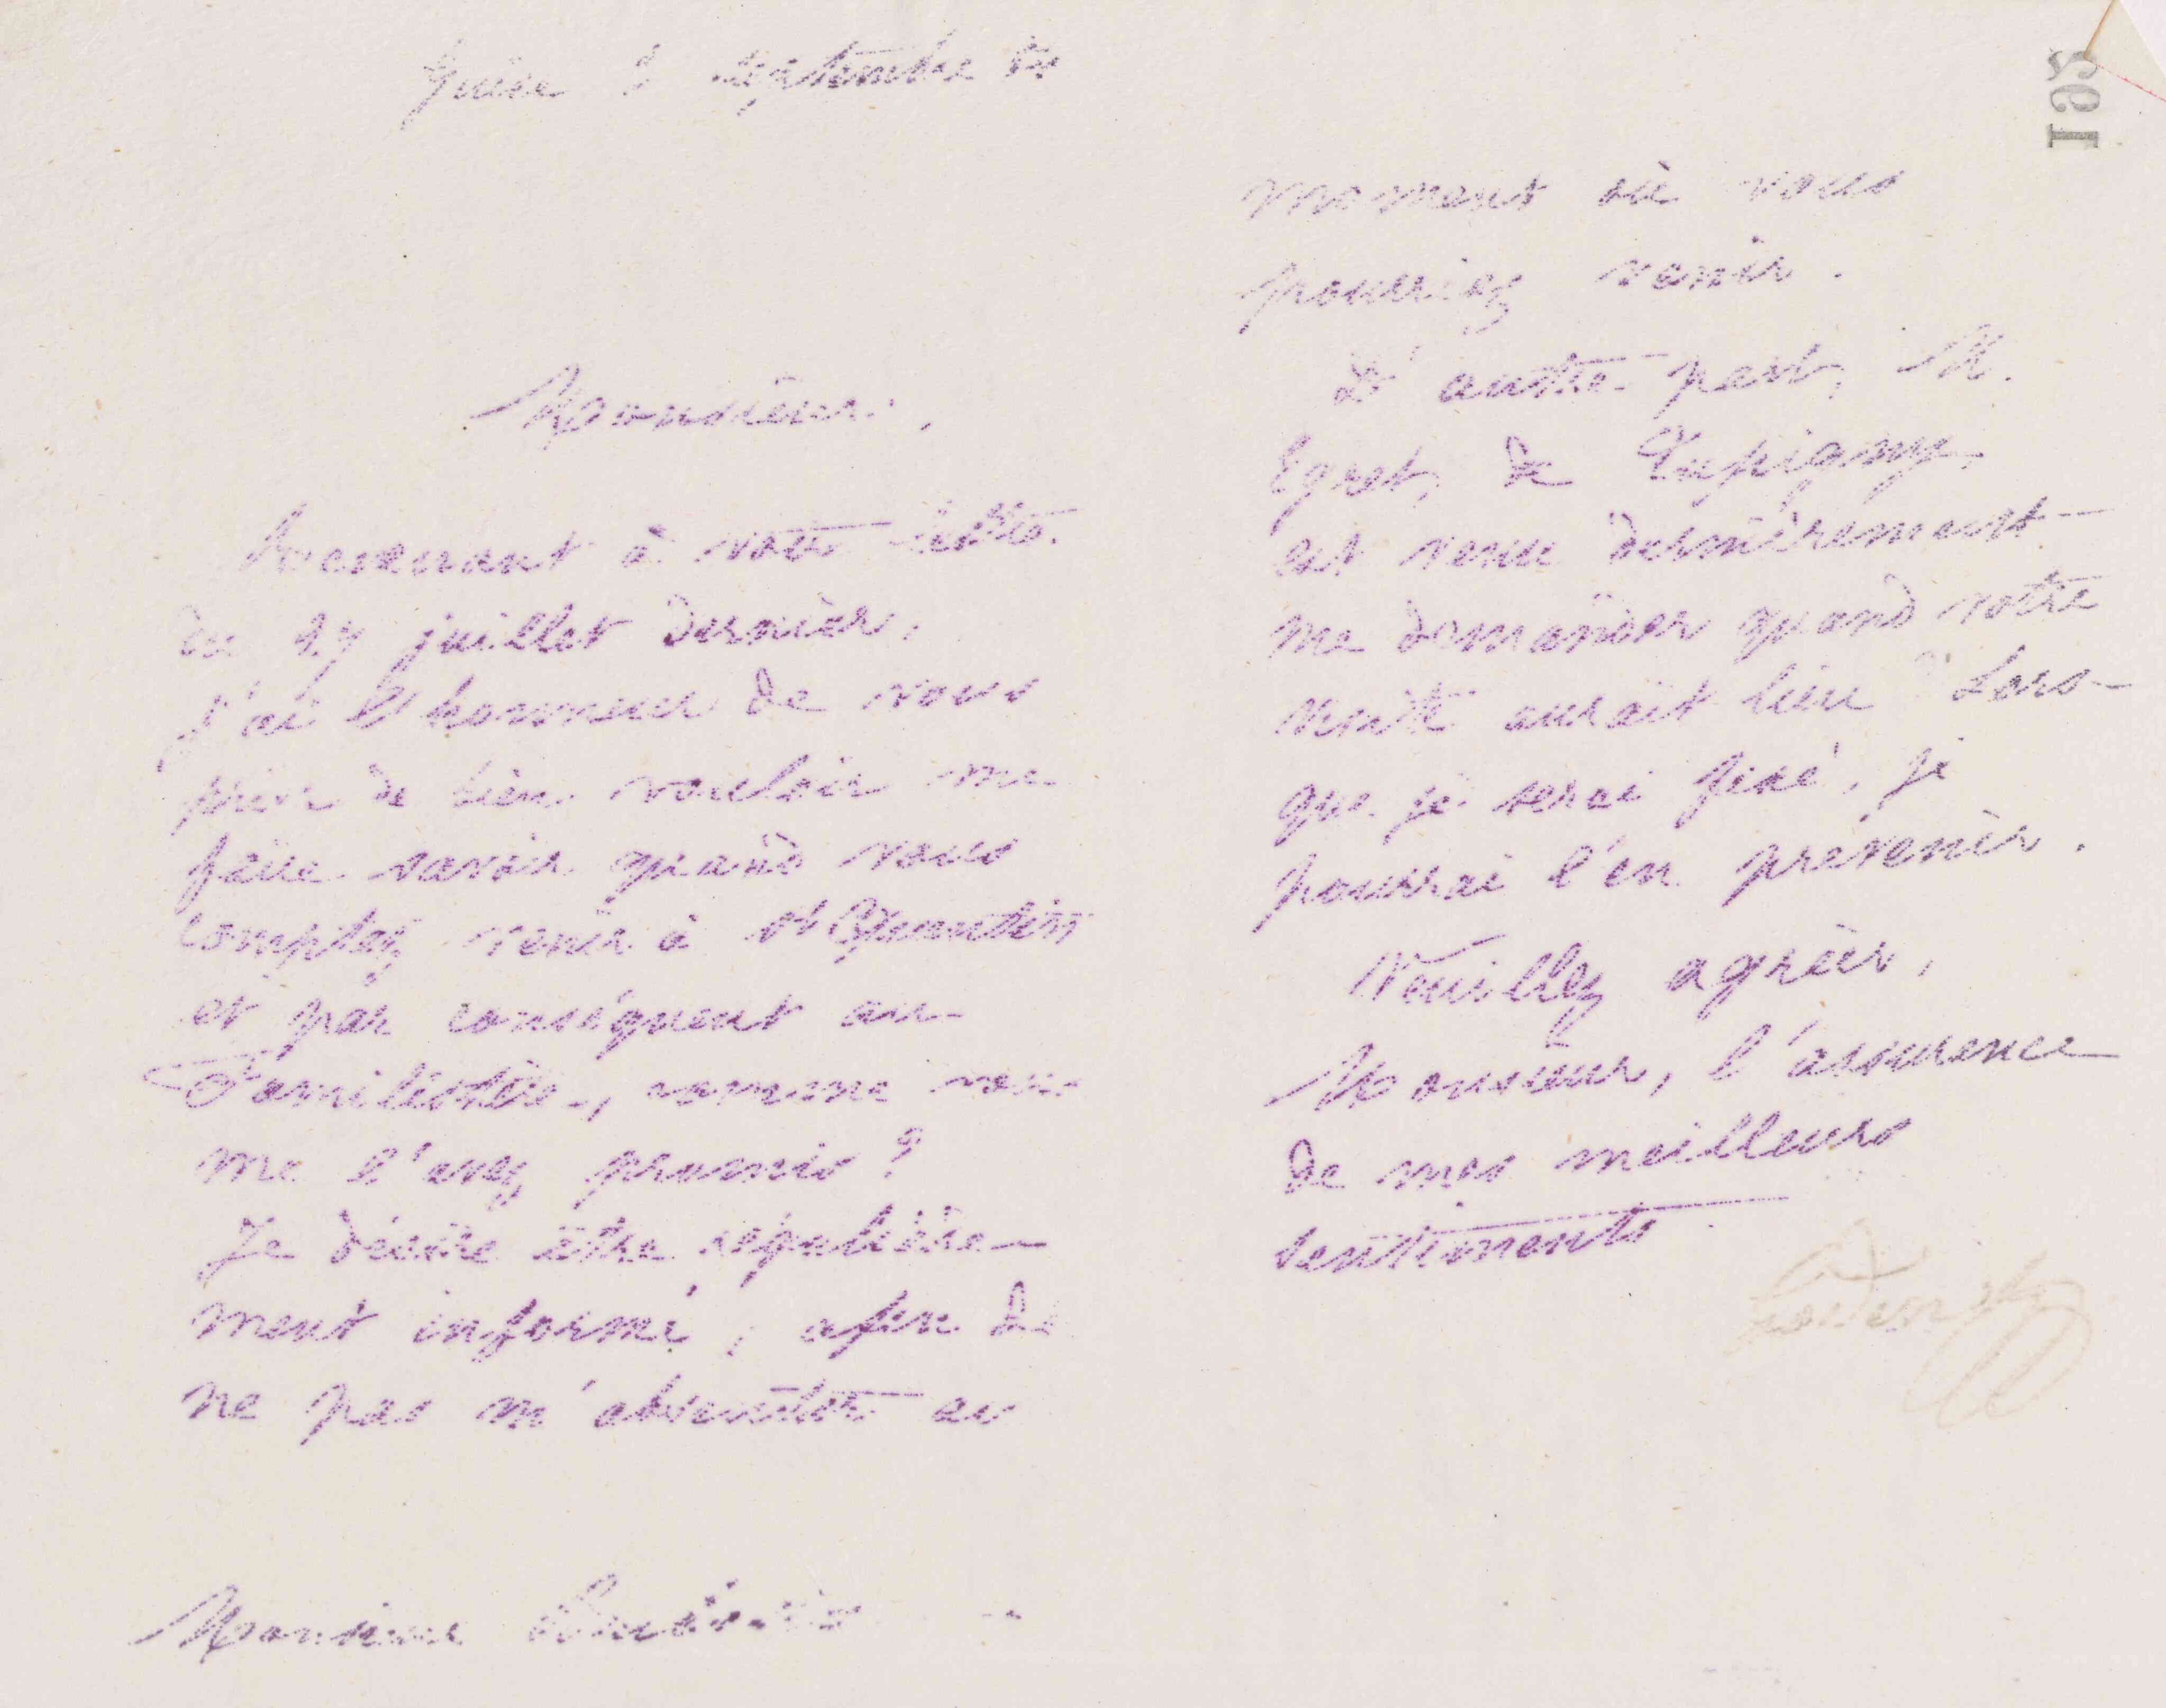 Guise 3 septembre
Monsieur,
Revenant à votre lettre
du 27 juillet dernier,
j'ai l'honneur de vous
prier de bien vouloir me
faire savoir quand vous
comptez venir à St Quentin
et par conséquent au
Familistère, comme vous
me l'avez promis ?
Je désire être régulière-
ment informé, afin de
ne pas m'absenter au
Monsieur
195
moment où vous
pourriez venir.
D'autre part, M.
Egret, de Eupigny,
est venu dernièrement
me demander quand votre
visite aurait lieu. Lors-
que je serai fixé, je
pourrai l'en prévenir.
Veuillez agréer,
Monsieur, l'assurance
de mes meilleurs
sentiments
Godin